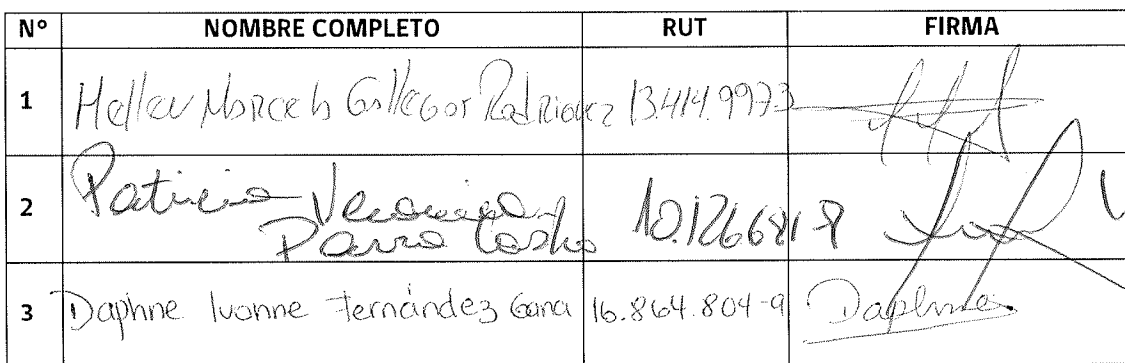 Nº NOMBRE COMPLETO RUT FIRMA
1 Marcela Gallegos Rodriguez 13.414.997-3
2 Patricia Veronica
Parra Castro 10.126681-8
3 Daphne Ivonne Fernández Gana 16.864.804-9 Daphne